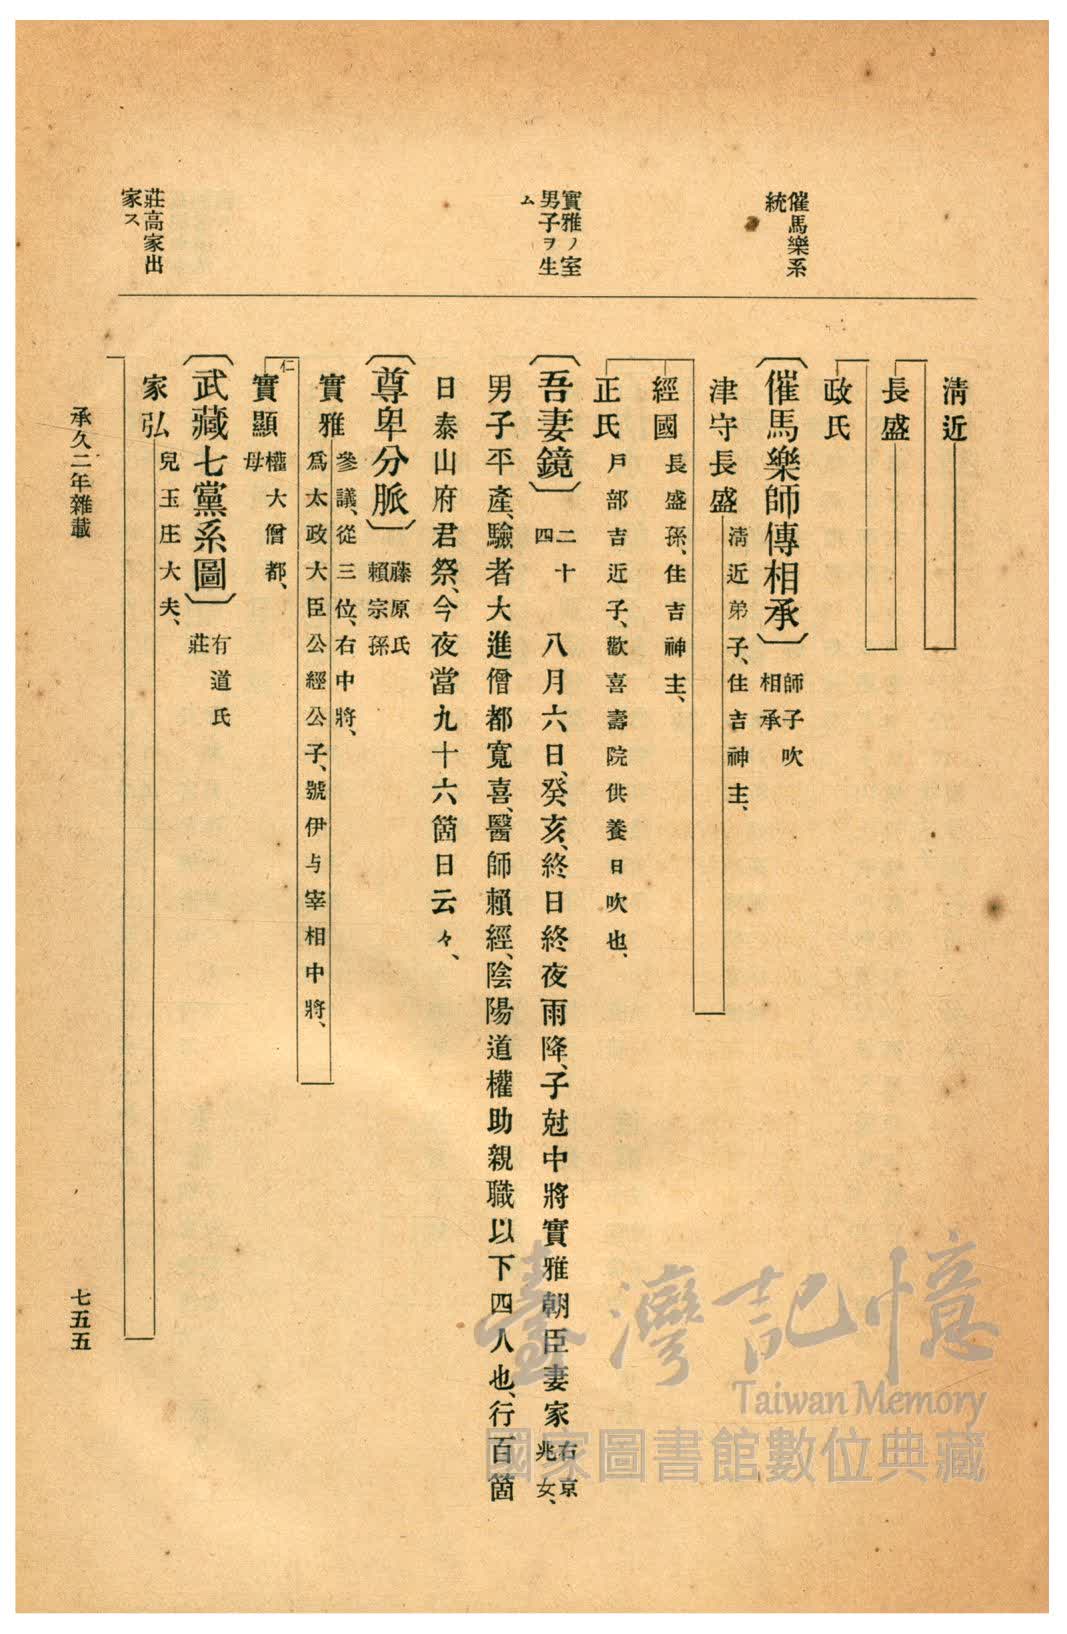 催馬樂系
統
實雅ノ室
男子ヲ生
ム
莊高家出
家ス
淸近
長盛
政氏
〔催馬樂師傳相承〕師子吹
相承
津守長盛淸近弟子、住吉神主、
經國長盛孫、住吉神主、
正氏戶部吉近子、歡喜壽院供養日吹也、
〔吾妻鏡〕二十
四
八月六日、癸亥、終日終夜雨降、子尅中將實雅朝臣妻家右京
兆女、
男子平產、驗者大進僧都寬喜、醫師賴經、陰陽道權助親職以下四人也、行百箇
日泰山府君祭、今夜當九十六箇日云々、
〔尊卑分脈〕藤原氏
賴宗孫
實雅參議、從三位、右中將、
爲太政大臣公經公子、號伊与宰相中將、
仁
實顯權大僧都、
母
〔武藏七黨系圖〕有道氏
莊
家弘兒玉庄大夫、
承久二年雜載
七五五
臺灣記憶
Taiwan Memory
國家圖書館數位典藏